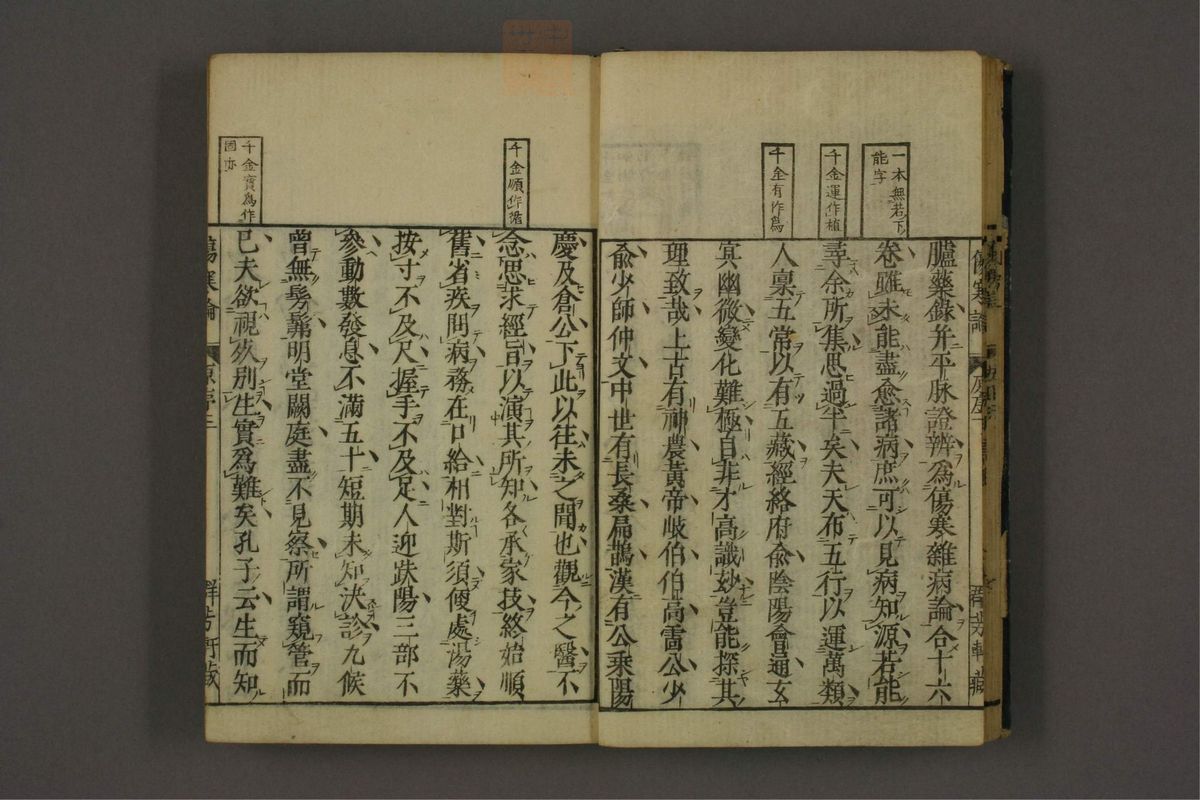 一本無若下
能字
千金運作植
千金有作爲
臚藥錄幷平脉證辨爲傷寒雜病論合十六
卷雖未能盡愈諸病庶可以見病知源若能
尋余所集思過半矣夫天布五行以運萬類
人稟五常以有五藏經絡府兪陰陽會通玄
冥幽微變化難極自非才高識妙豈能探其
理致哉上古有神農黃帝岐伯伯高雷公少
兪少師仲文中世有長桑扁鵲漢有公乘陽
千金順作循
千金實爲作
固亦
慶及倉公下此以往未之聞也觀今之醫不
念思求經旨以演其所知各承家技終始順
舊省疾問病務在口給相對斯須便處湯藥
按寸不及尺握手不及足人迎趺陽三部不
參動數發息不滿五十短期未知決診九候
曾無髣髴明堂闕庭盡不見察所謂窺管而
已夫欲視死別生實爲難矣孔子云生而知
傷寒論
原序二
群芳軒藏